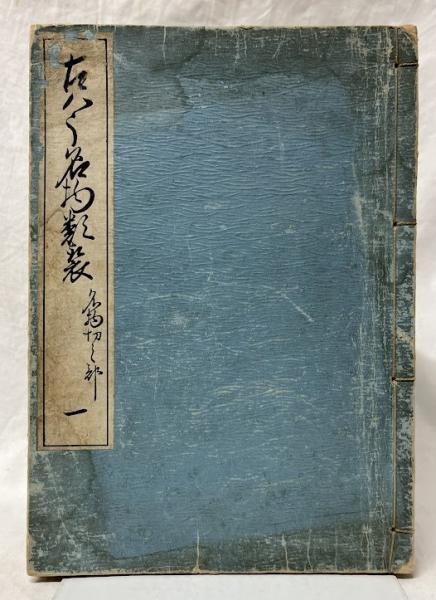 古今名物類聚
名物切之部 一